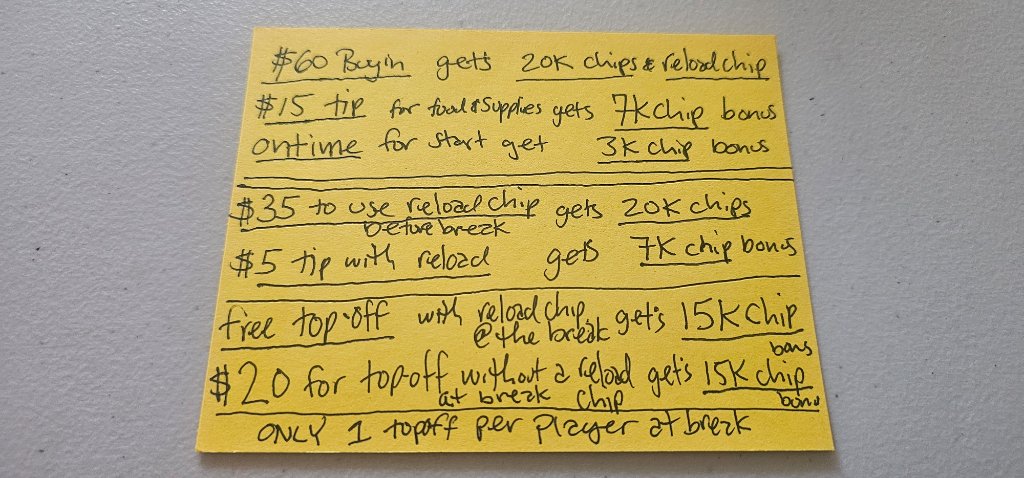 $60 Buyin gets 20K chips & reload chip
$15 tip for food & supplies gets 7K chip bonus
ontime for start get 3K chip bonus
$35 to use reload chip gets 20K chips
before break
$5 tip with reload gets 7K chip bonus
free top-off with reload chip get's 15K chip
@ the break bonus
$20 for top-off without a reload get's 15K chip
at break chip bonus
ONLY 1 topoff per player at break